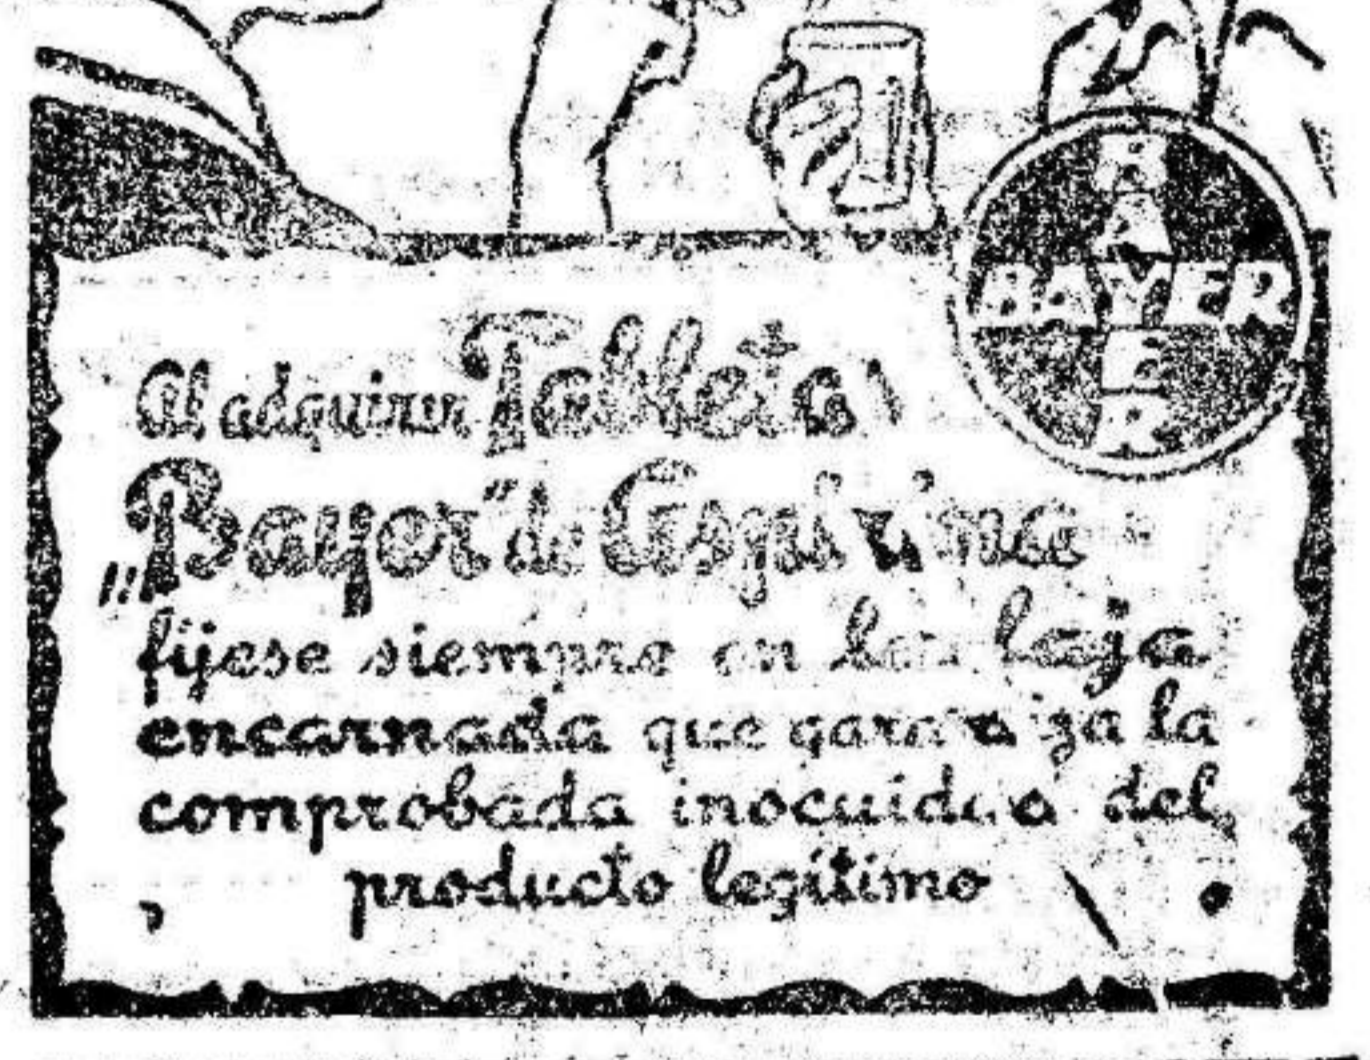 BAYER
BAYER
Al adquirir Tabletas
„Bayer" de Aspirina
fíjese siempre en la faja
encarnada que garantiza la
comprobada inocuidad del
producto legítimo